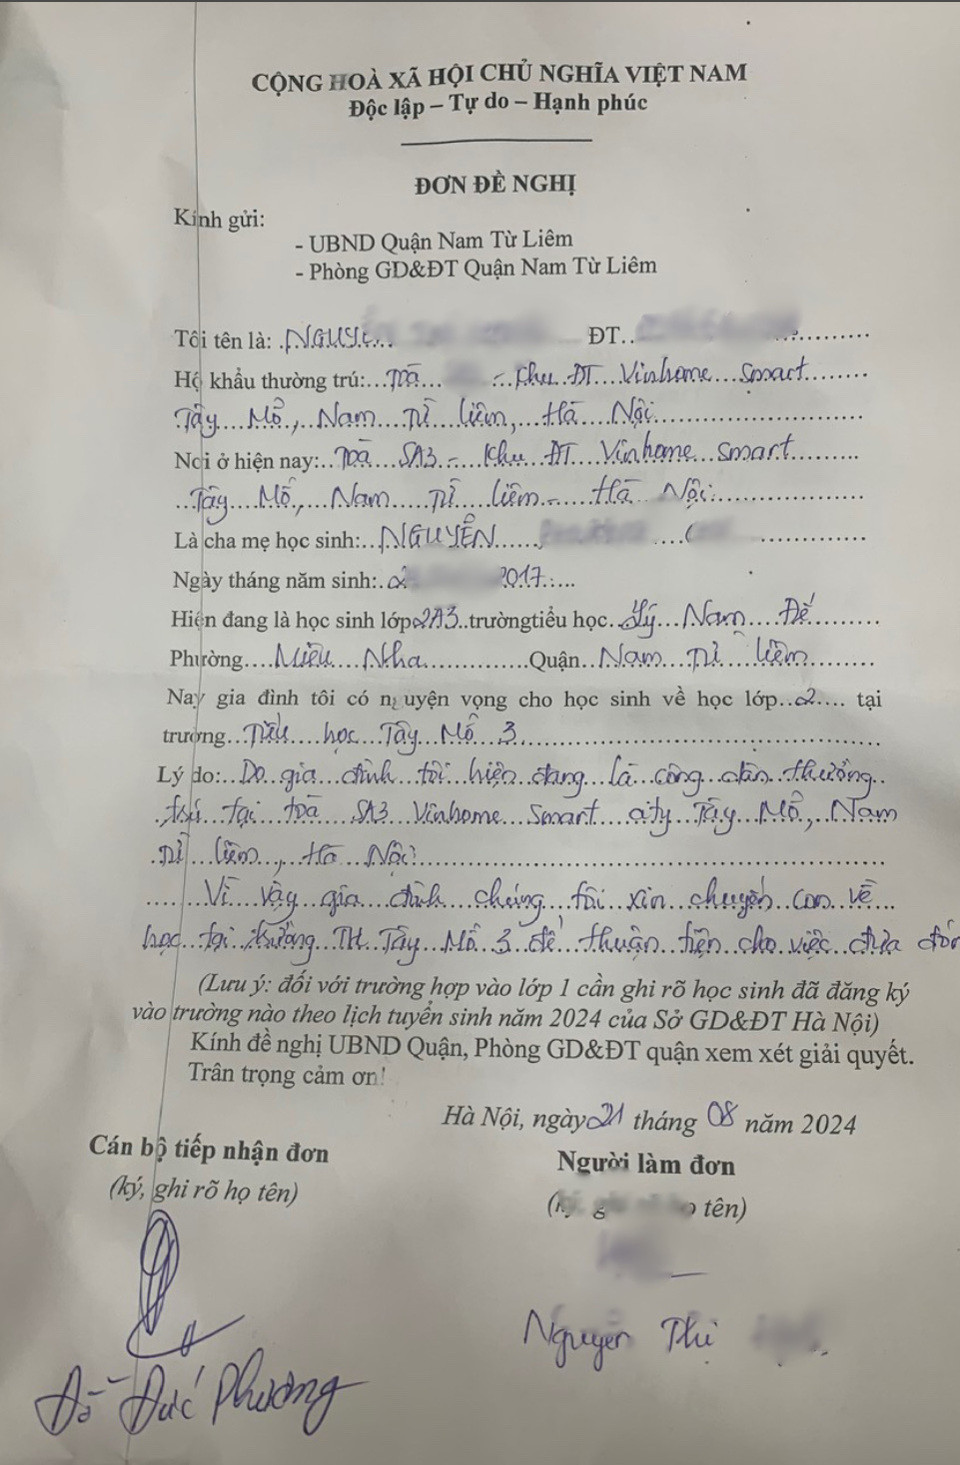 CỘNG HOÀ XÃ HỘI CHỦ NGHĨA VIỆT NAM
Độc lập – Tự do – Hạnh phúc
ĐƠN ĐỀ NGHỊ
Kính gửi:
- UBND Quận Nam Từ Liêm
- Phòng GD&ĐT Quận Nam Từ Liêm
Tôi tên là: ĐT
Hộ khẩu thường trú: Toà - Khu ĐT Vinhome Smart
Tây Mỗ, Nam Từ Liêm, Hà Nội
Nơi ở hiện nay: Toà SA3 - Khu ĐT Vinhome Smart
Tây Mỗ, Nam Từ Liêm - Hà Nội
Là cha mẹ học sinh: NGUYỄN
Ngày tháng năm sinh: 2017
Hiện đang là học sinh lớp 2A3 trường tiểu học Lý Nam Đế
Phường Miêu Nha Quận Nam Từ Liêm
Nay gia đình tôi có nguyện vọng cho học sinh về học lớp 2 tại
trường Tiểu học Tây Mỗ 3
Lý do: Do gia đình tôi hiện đang là công dân thường
trú tại toà SA3 Vinhome Smart city Tây Mỗ, Nam
Từ Liêm, Hà Nội
Vì vậy gia đình chúng tôi xin chuyển con về
học tại trường TH Tây Mỗ 3 để thuận tiện cho việc đưa đón
(Lưu ý: đối với trường hợp vào lớp 1 cần ghi rõ học sinh đã đăng ký
vào trường nào theo lịch tuyển sinh năm 2024 của Sở GD&ĐT Hà Nội)
Kính đề nghị UBND Quận, Phòng GD&ĐT quận xem xét giải quyết.
Trân trọng cảm ơn!
Hà Nội, ngày 21 tháng 08 năm 2024
Cán bộ tiếp nhận đơn
(ký, ghi rõ họ tên)
Người làm đơn
(ký, ghi rõ họ tên)
Nguyễn Thị
Đỗ Đức Phương